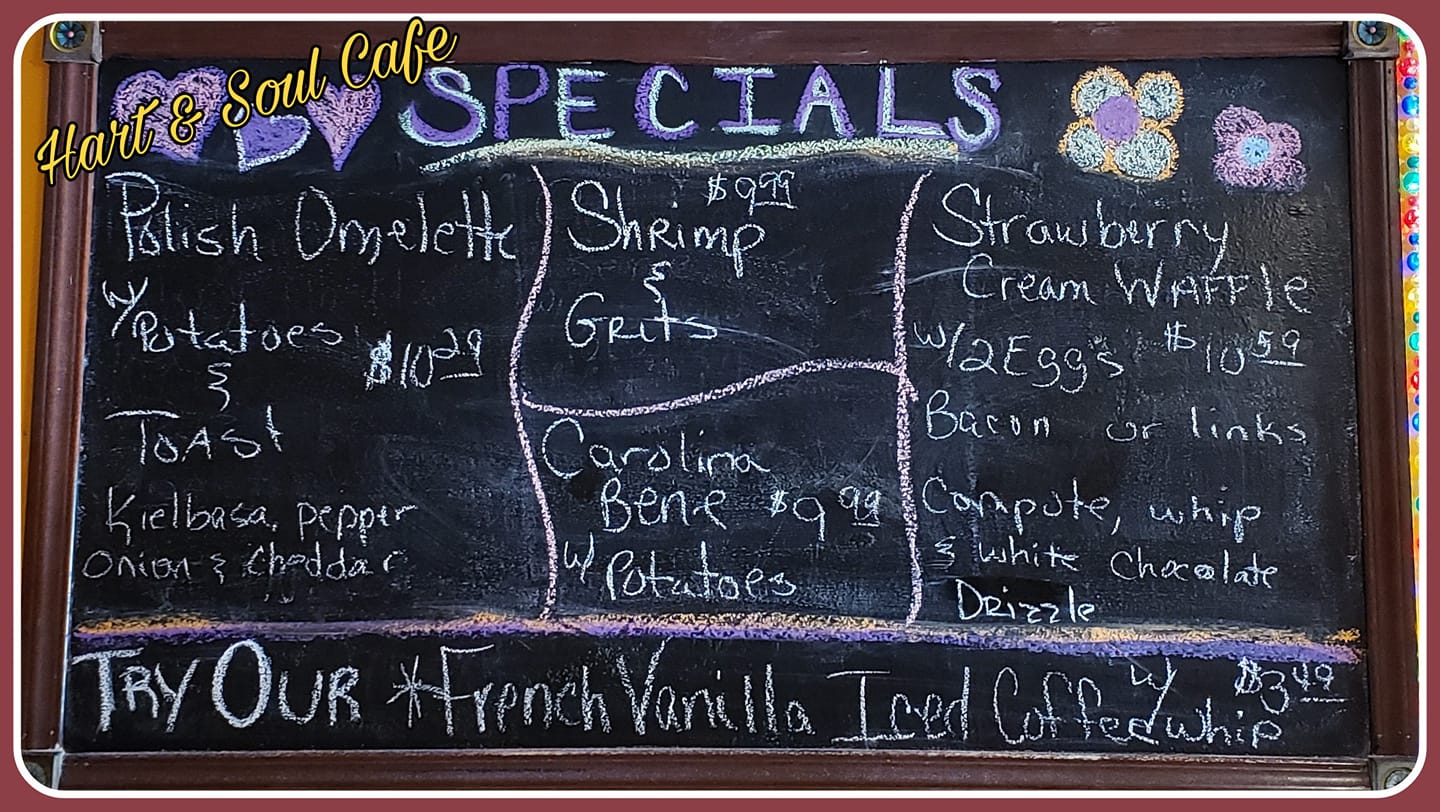 Hart & Soul Cafe
SPECIALS
Polish Omelette
w/ Potatoes
&
$10.29
Toast
Kielbasa, pepper
onion & cheddar
$9.99
Shrimp
&
Grits
Carolina
Bene $9.99
w/ Potatoes
Strawberry
Cream WAFFle
w/2 Eggs $10.59
Bacon or links
Compote, whip
& white Chocolate
Drizzle
TRY OUR *French Vanilla Iced Coffee w/ whip $3.49